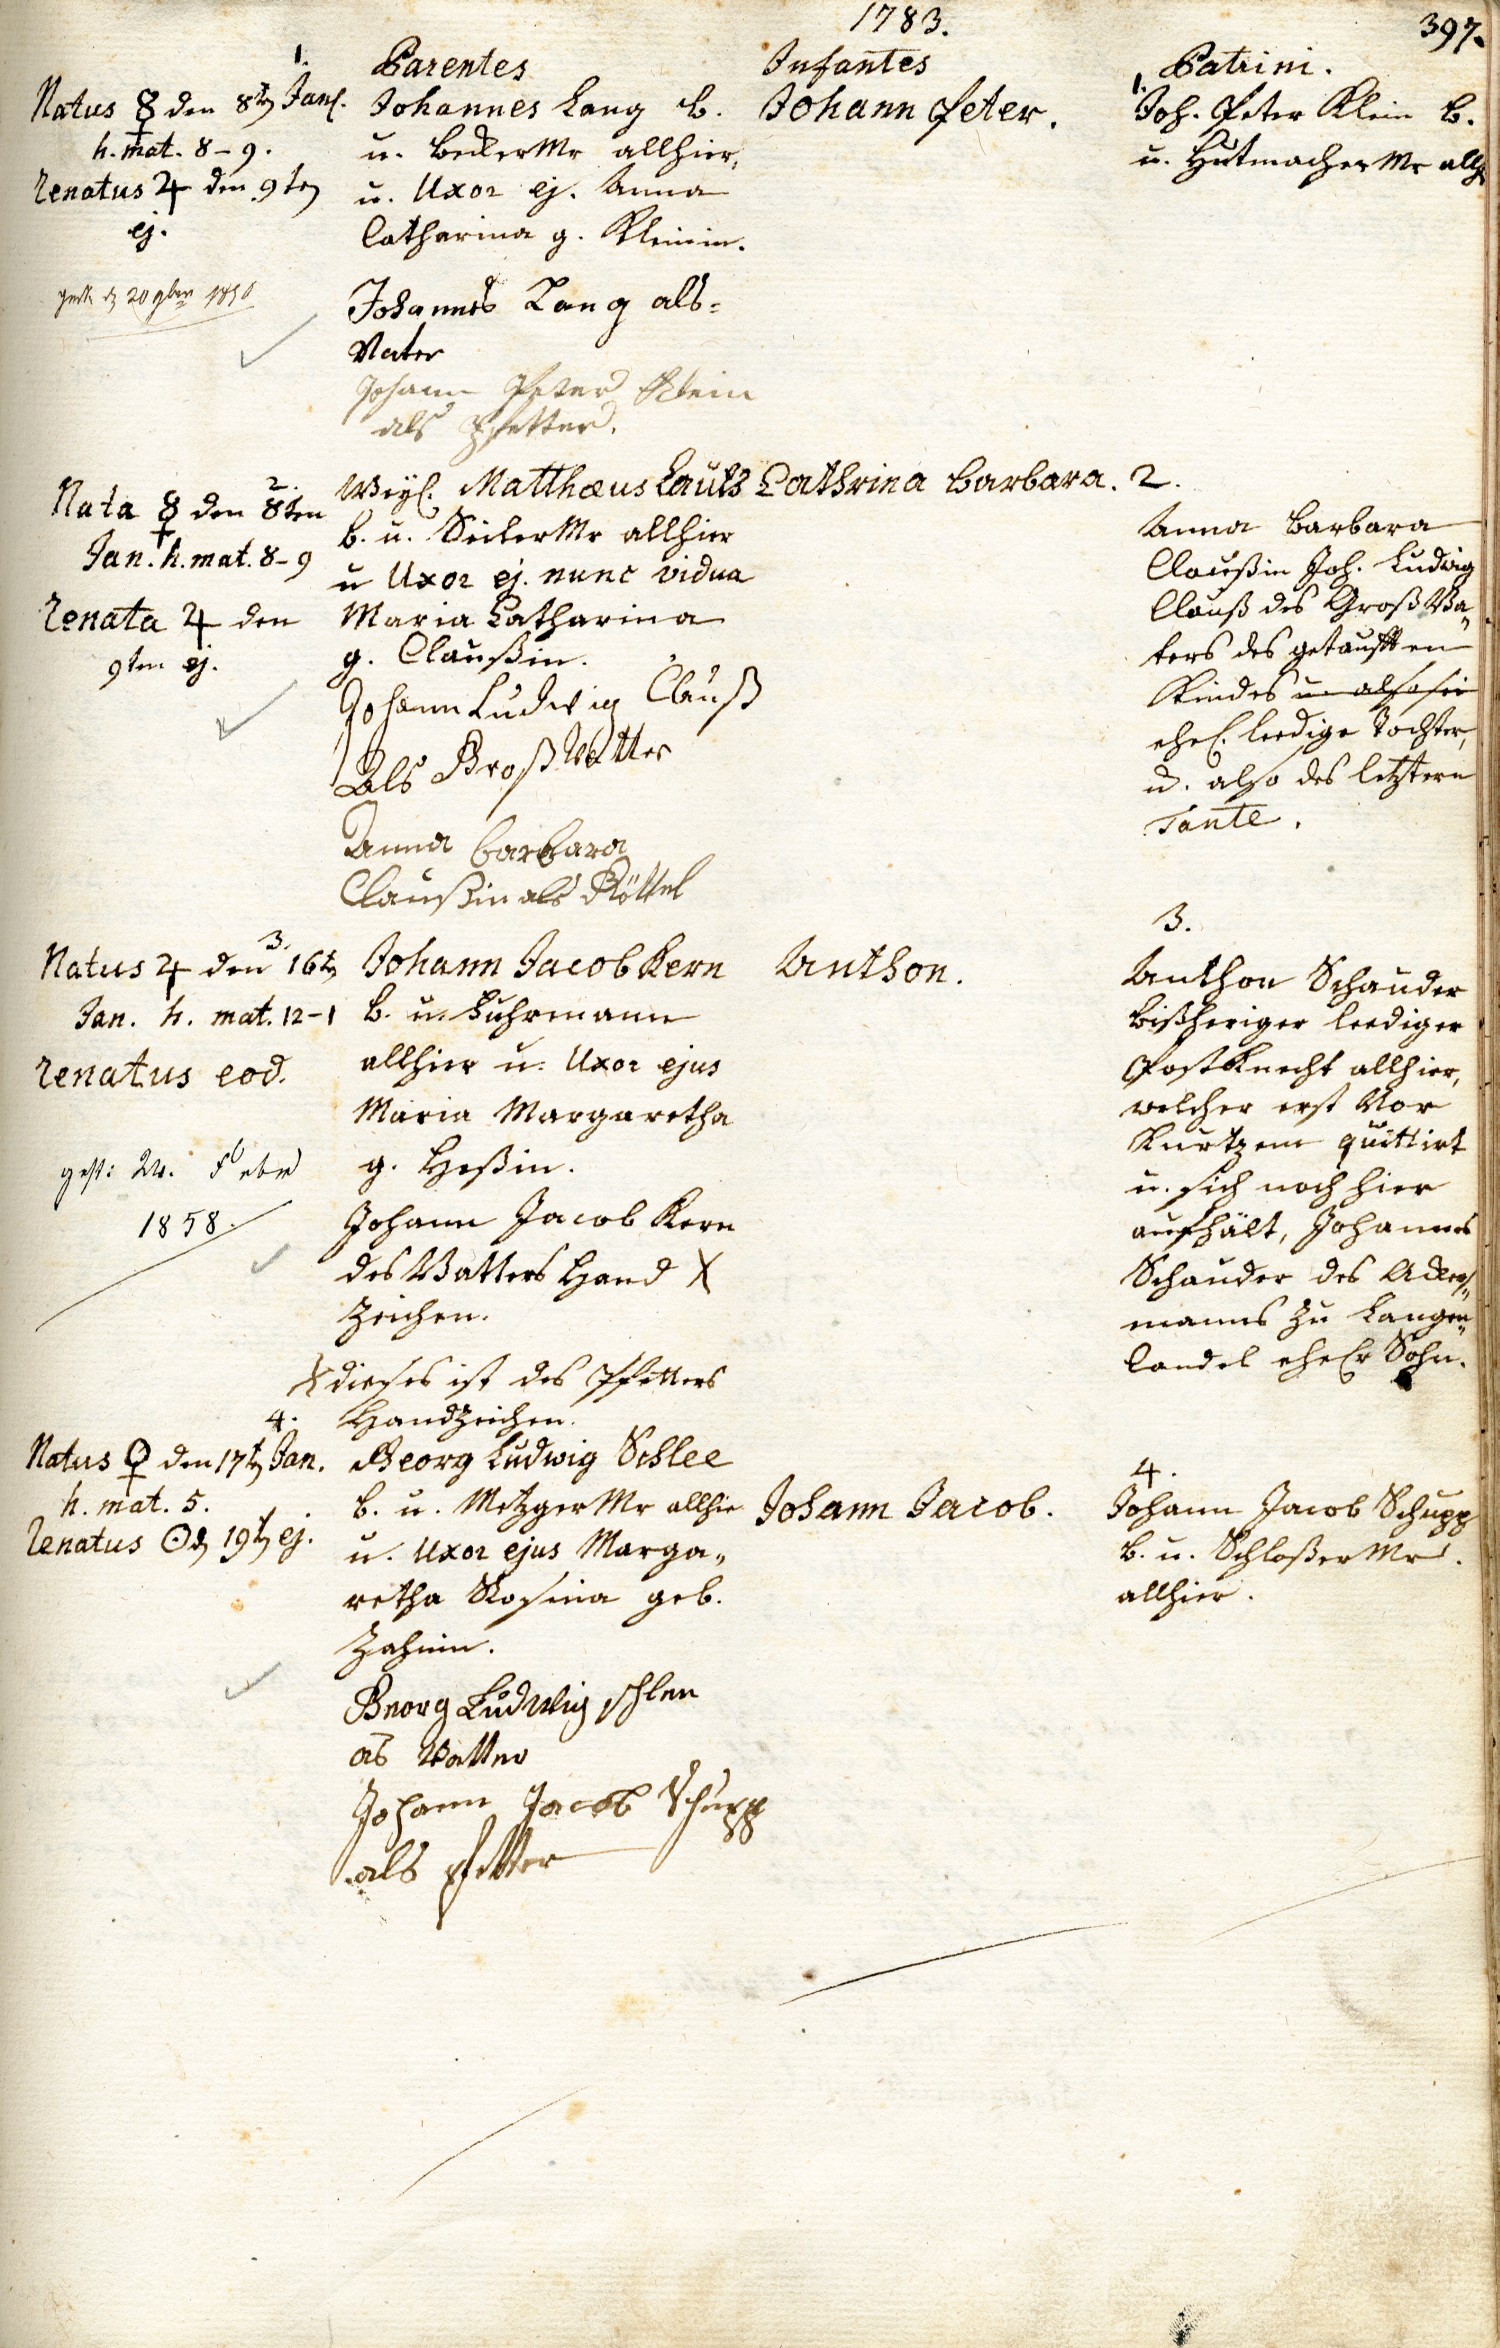 1783.
397.
Parentes
Infantes
Patrini.
1.
Natus ☿ den 8t Jan.
h. mat. 8-9.
renatus ♃ den 9ten
ej.
Johannes Lang b.
u. becker Mr allhier,
u. Uxor ej. Anna
Catharina g. Kleinin.
Johann Peter.
1.
Joh. Peter Klein b.
u. Hutmacher Mr allh
gest. d 20 9ber
Johannes Lang als=
Vater
Johann Peter Klein
als Pfetter.
2.
Nata ☿ den 8ten
Jan. h. mat. 8-9
renata ♃ den
9ten ej.
Weyl. Matthæus Lauts
b. u. Seiler Mr allhier
u Uxor ej. nunc vidua
Maria Catharina
g. Claußin.
Cathrina barbara.
2.
Anna barbara
Claußin Joh. Ludwig
Clauß des Groß Va„
ters des getaufften
Kindes u. also sie
ehel. leedige Tochter,
u. also des letztern
Tante.
Johann Ludwig Clauß
Als Groß Vatter
Anna barbara
Claußin als Göttel
3.
Natus ♃ den 16t
Jan. h. mat. 12-1
renatus eod.
Johann Jacob Kern
b. u. Fuhrmann
allhier u. Uxor ejus
Maria Margaretha
g. Heßin.
Anthon.
3.
Anthon Schauder
bißheriger leediger
Postknecht allhier,
welcher erst Vor
Kurtzem quittirt
u. sich noch hier
aufhält, Johannes
Schauder des Ackers„
manns zu Langen„
Candel ehelr Sohn.
gest: 24. Febr
1858.
Johann Jacob Kern
des Vatters Hand X
zeichen.
X dieses ist des Pfetters
Handzeichen.
4.
Natus ♀ den 17t Jan.
h. mat. 5.
renatus ☉ d 19t ej.
Georg Ludwig Schlee
b. u. Metzger Mr allhie
u. Uxor ejus Marga„
retha Rosina geb.
Zahnin.
Johann Jacob.
4.
Johann Jacob Schupp
b. u. Schloßer Mr.
allhier.
Georg Ludwig schlee
als Vatter
Johann Jacob Schupp
als pfetter